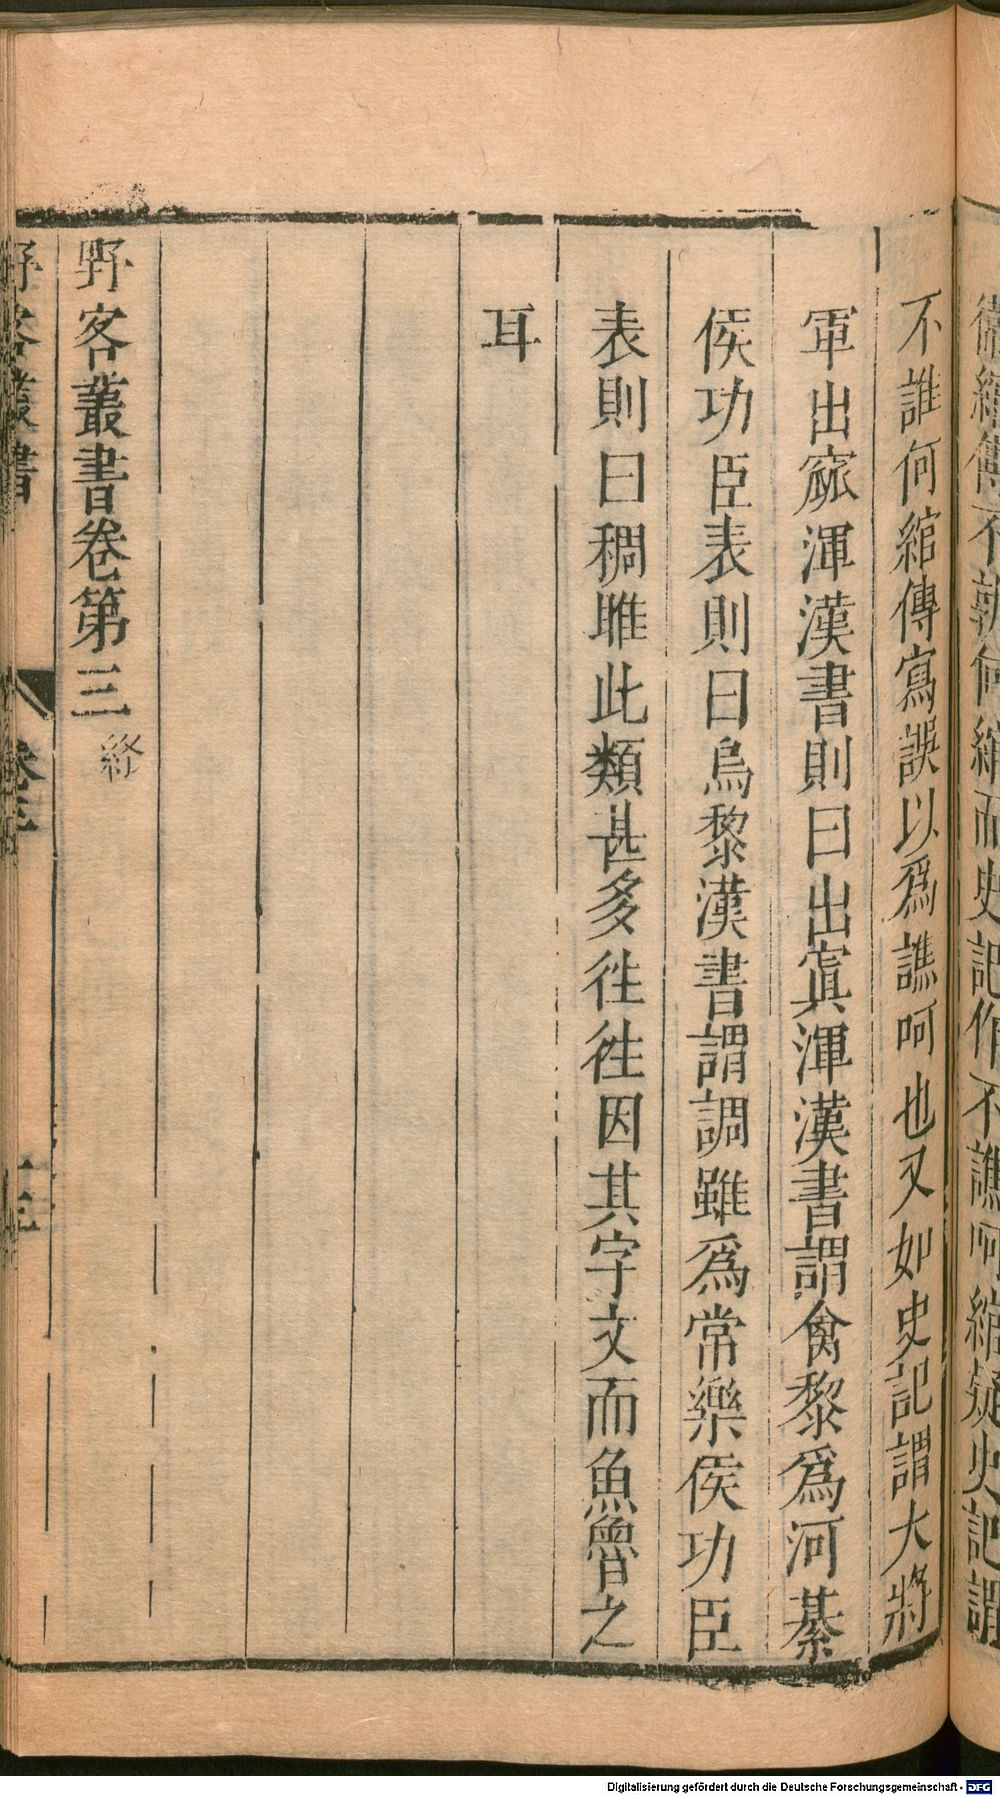 衞綰傳不孰何綰而史記作不譙呵綰疑史記謂
不誰何綰傳寫誤以爲譙呵也又如史記謂大將
軍出窳渾漢書則曰出寘渾漢書謂禽黎爲河綦
侯功臣表則曰烏黎漢書謂調雖爲常樂侯功臣
表則曰稠雎此類甚多徃徃因其字文而魚魯之
耳
野客叢書卷第三 終
野客叢書 卷三
Digitalisierung gefördert durch die Deutsche Forschungsgemeinschaft - DFG